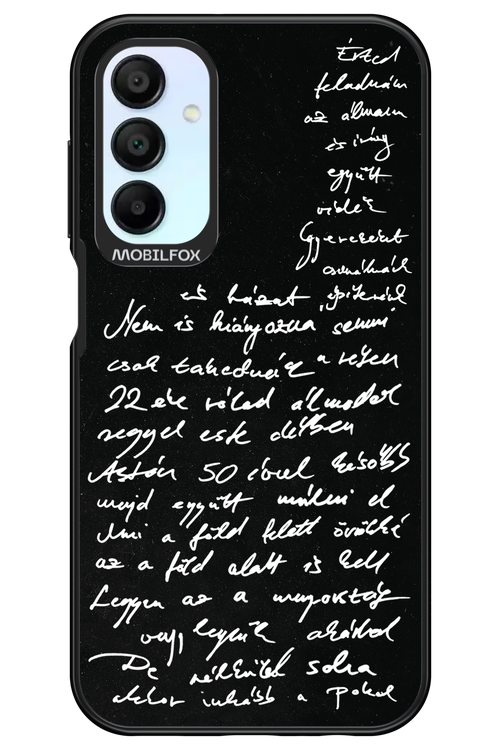 Érted
feladnám
az álmaim
és irány
együtt
vidék
MOBILFOX
Gyerekeket
csinálnánk
és házat építenénk
Nem is hiányozna semmi
csak takednézz a vélem
22 éve rólad álmodok
reggel este délben
Aztán 50 évvel később
majd együtt múlni el
Ami a föld felett örökké
az a föld alatt is kell
Legyen az a mennyország
vagy legyünk akárhol
De nélküled soha
akkor inkább a pokol